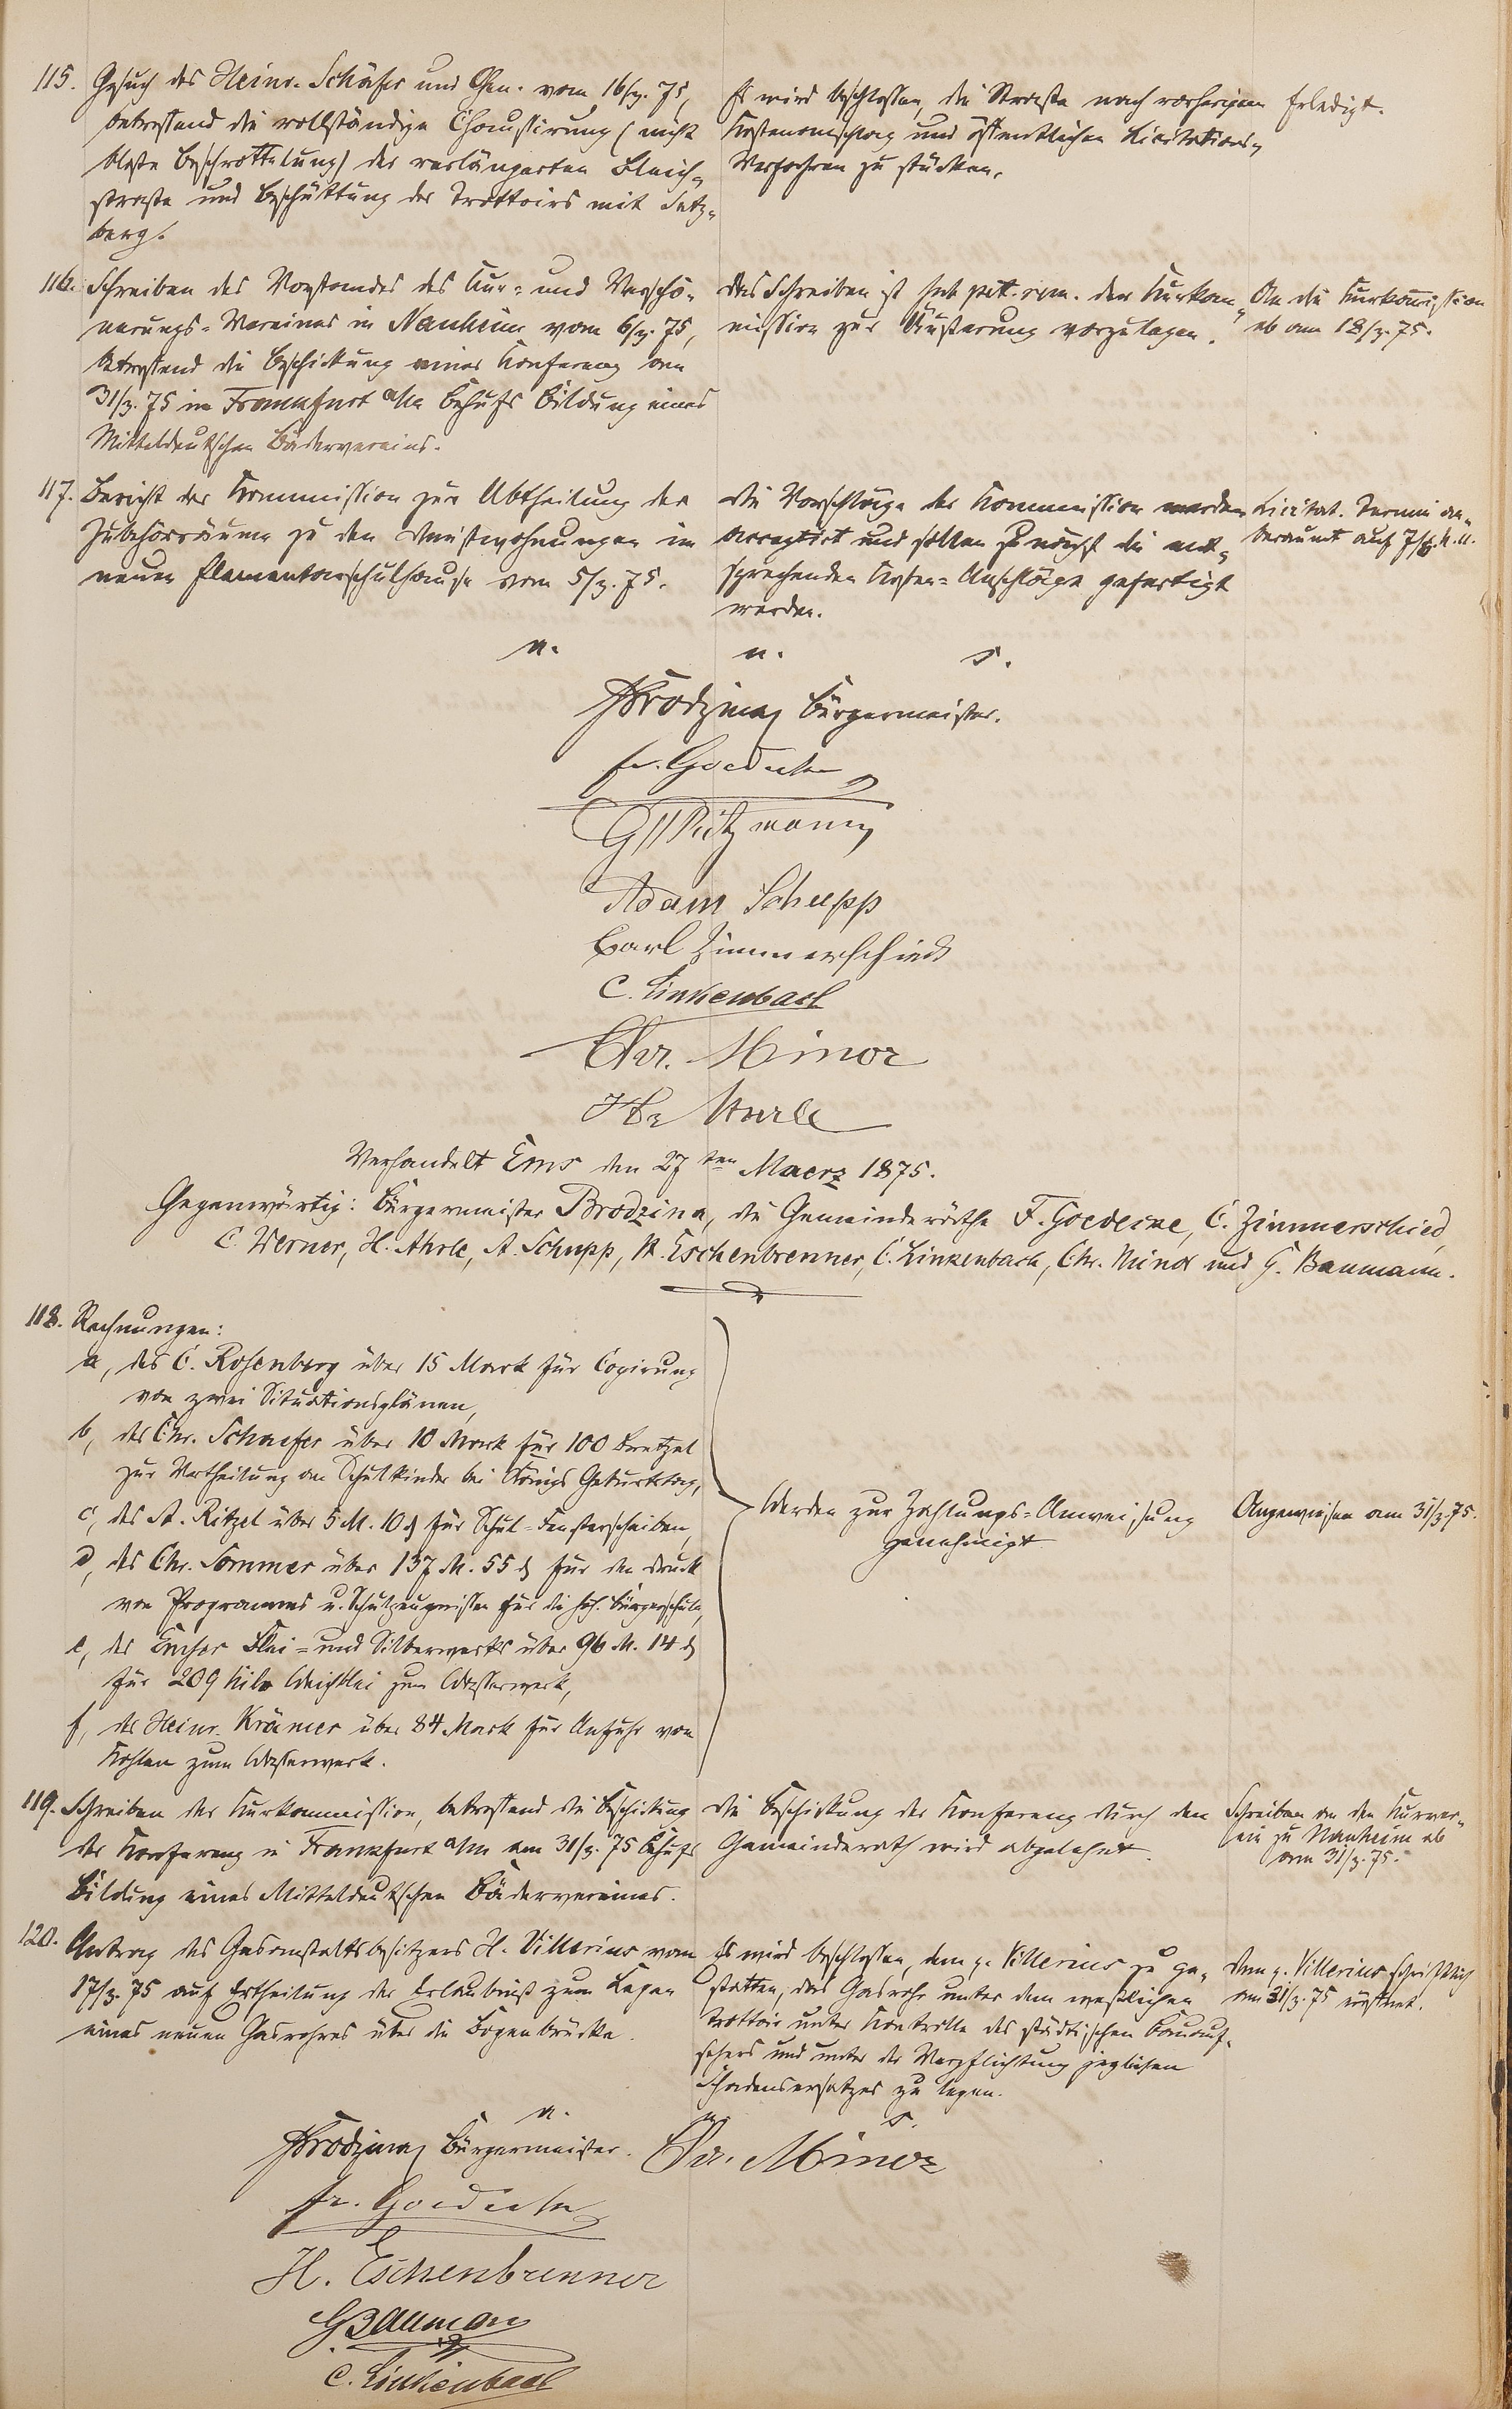 115. Gesuch des Heinr. Schäfer und Gen. vom 16/3. 75,
betreffend die vollständige Chaussirung (nicht
bloße Beschrottelung) der verlängerten Bleich-
straße und Beschüttung der Trottoirs mit Setz-
berg.
Es wird beschlossen, die Straße nach vorherigem
Kostenanschlag und öffentlichen Licitations-
Verfahren zu stücken.
Erledigt.
116. Schreiben des Vorstandes des Kur- und Verschö-
nerungs-Vereines in Nauheim vom 6/3. 75,
betreffend die Beschickung einer Konferenz am
31/3. 75 in Frankfurt a/M behufs Bildung eines
Mitteldeutschen Bädervereins.
Das Schreiben ist sub pet. rem. der Kurkom-
mission zur Äußerung vorzulegen.
An die Kurkommission
ab am 18/3. 75.
117. Bericht der Kommission zur Abtheilung der
Zubehörräume zu den Dienstwohnungen im
neuen Elementarschulhause vom 5/3. 75.
Die Vorschläge der Kommission werden
acceptirt und sollen zunächst die ent-
sprechenden Kosten-Anschläge gefertigt
werden.
Licitat. Termin an-
beraumt auf 7/4. h. a.
v. u. s.
Brodzina Bürgermeister.
Fr. Goedecke
Adam Schupp
Carl Zimmerschied
C. Linkenbach
Chr. Minor
Verhandelt Ems den 27ten Maerz 1875.
Gegenwärtig: Bürgermeister Brodzina, die Gemeinderäthe F. Goedecke, C. Zimmerschied,
C. Werner, H. Ahrle, A. Schupp, H. Eschenbrenner, C. Linkenbach, Chr. Minor und G. Baumann.
118. Rechnungen:
a, des C. Rosenberg über 15 Mark für Copirung
von zwei Situationsplänen,
b, des Chr. Schaefer über 10 Mark für 100 Bretzel
zur Vertheilung an Schulkinder bei Königs Geburtstag,
c, des A. Ritzel über 5 M. 10 ₰ für Schul-Fensterscheiben,
d, des Chr. Sommer über 137 M. 55 ₰ für den Druck
von Programms u. Schulzeugnissen für die höh. Bürgerschule,
e, des Emser Blei- und Silberwerks über 96 M. 14 ₰
für 209 Kilo Weichblei zum Wasserwerk,
f, des Heinr. Krämer über 84 Mark für Anfuhr von
Kohlen zum Wasserwerk.
Werden zur Zahlungs-Anweisung
genehmigt
Angewiesen am 31/3. 75.
119. Schreiben der Kurkommission, betreffend die Beschickung
der Konferenz in Frankfurt a/M am 31/3. 75 behufs
Bildung eines Mitteldeutschen Bädervereines.
Die Beschickung der Konferenz durch den
Gemeinderath wird abgelehnt.
Schreiben an den Kurver-
ein zu Nauheim ab
am 31/3. 75.
120. Antrag des Gasanstaltsbesitzers H. Villerius vom
17/3. 75 auf Ertheilung der Erlaubniß zum Legen
eines neuen Gasrohres über die Bogenbrücke.
Es wird beschlossen, dem p. Villerius zu ge-
statten, das Gasrohr unter dem westlichen
Trottoir unter Kontrolle des städtischen Bauauf-
sehers und unter der Verpflichtung jeglichen
Schadensersatzes zu legen.
Dem p. Villerius schriftlich
am 31/3. 75 eröffnet.
v. u. s.
Brodzina Bürgermeister. Chr. Minor
Fr. Goedecke
H. Eschenbrenner
G Bauman
C. Linkenbach